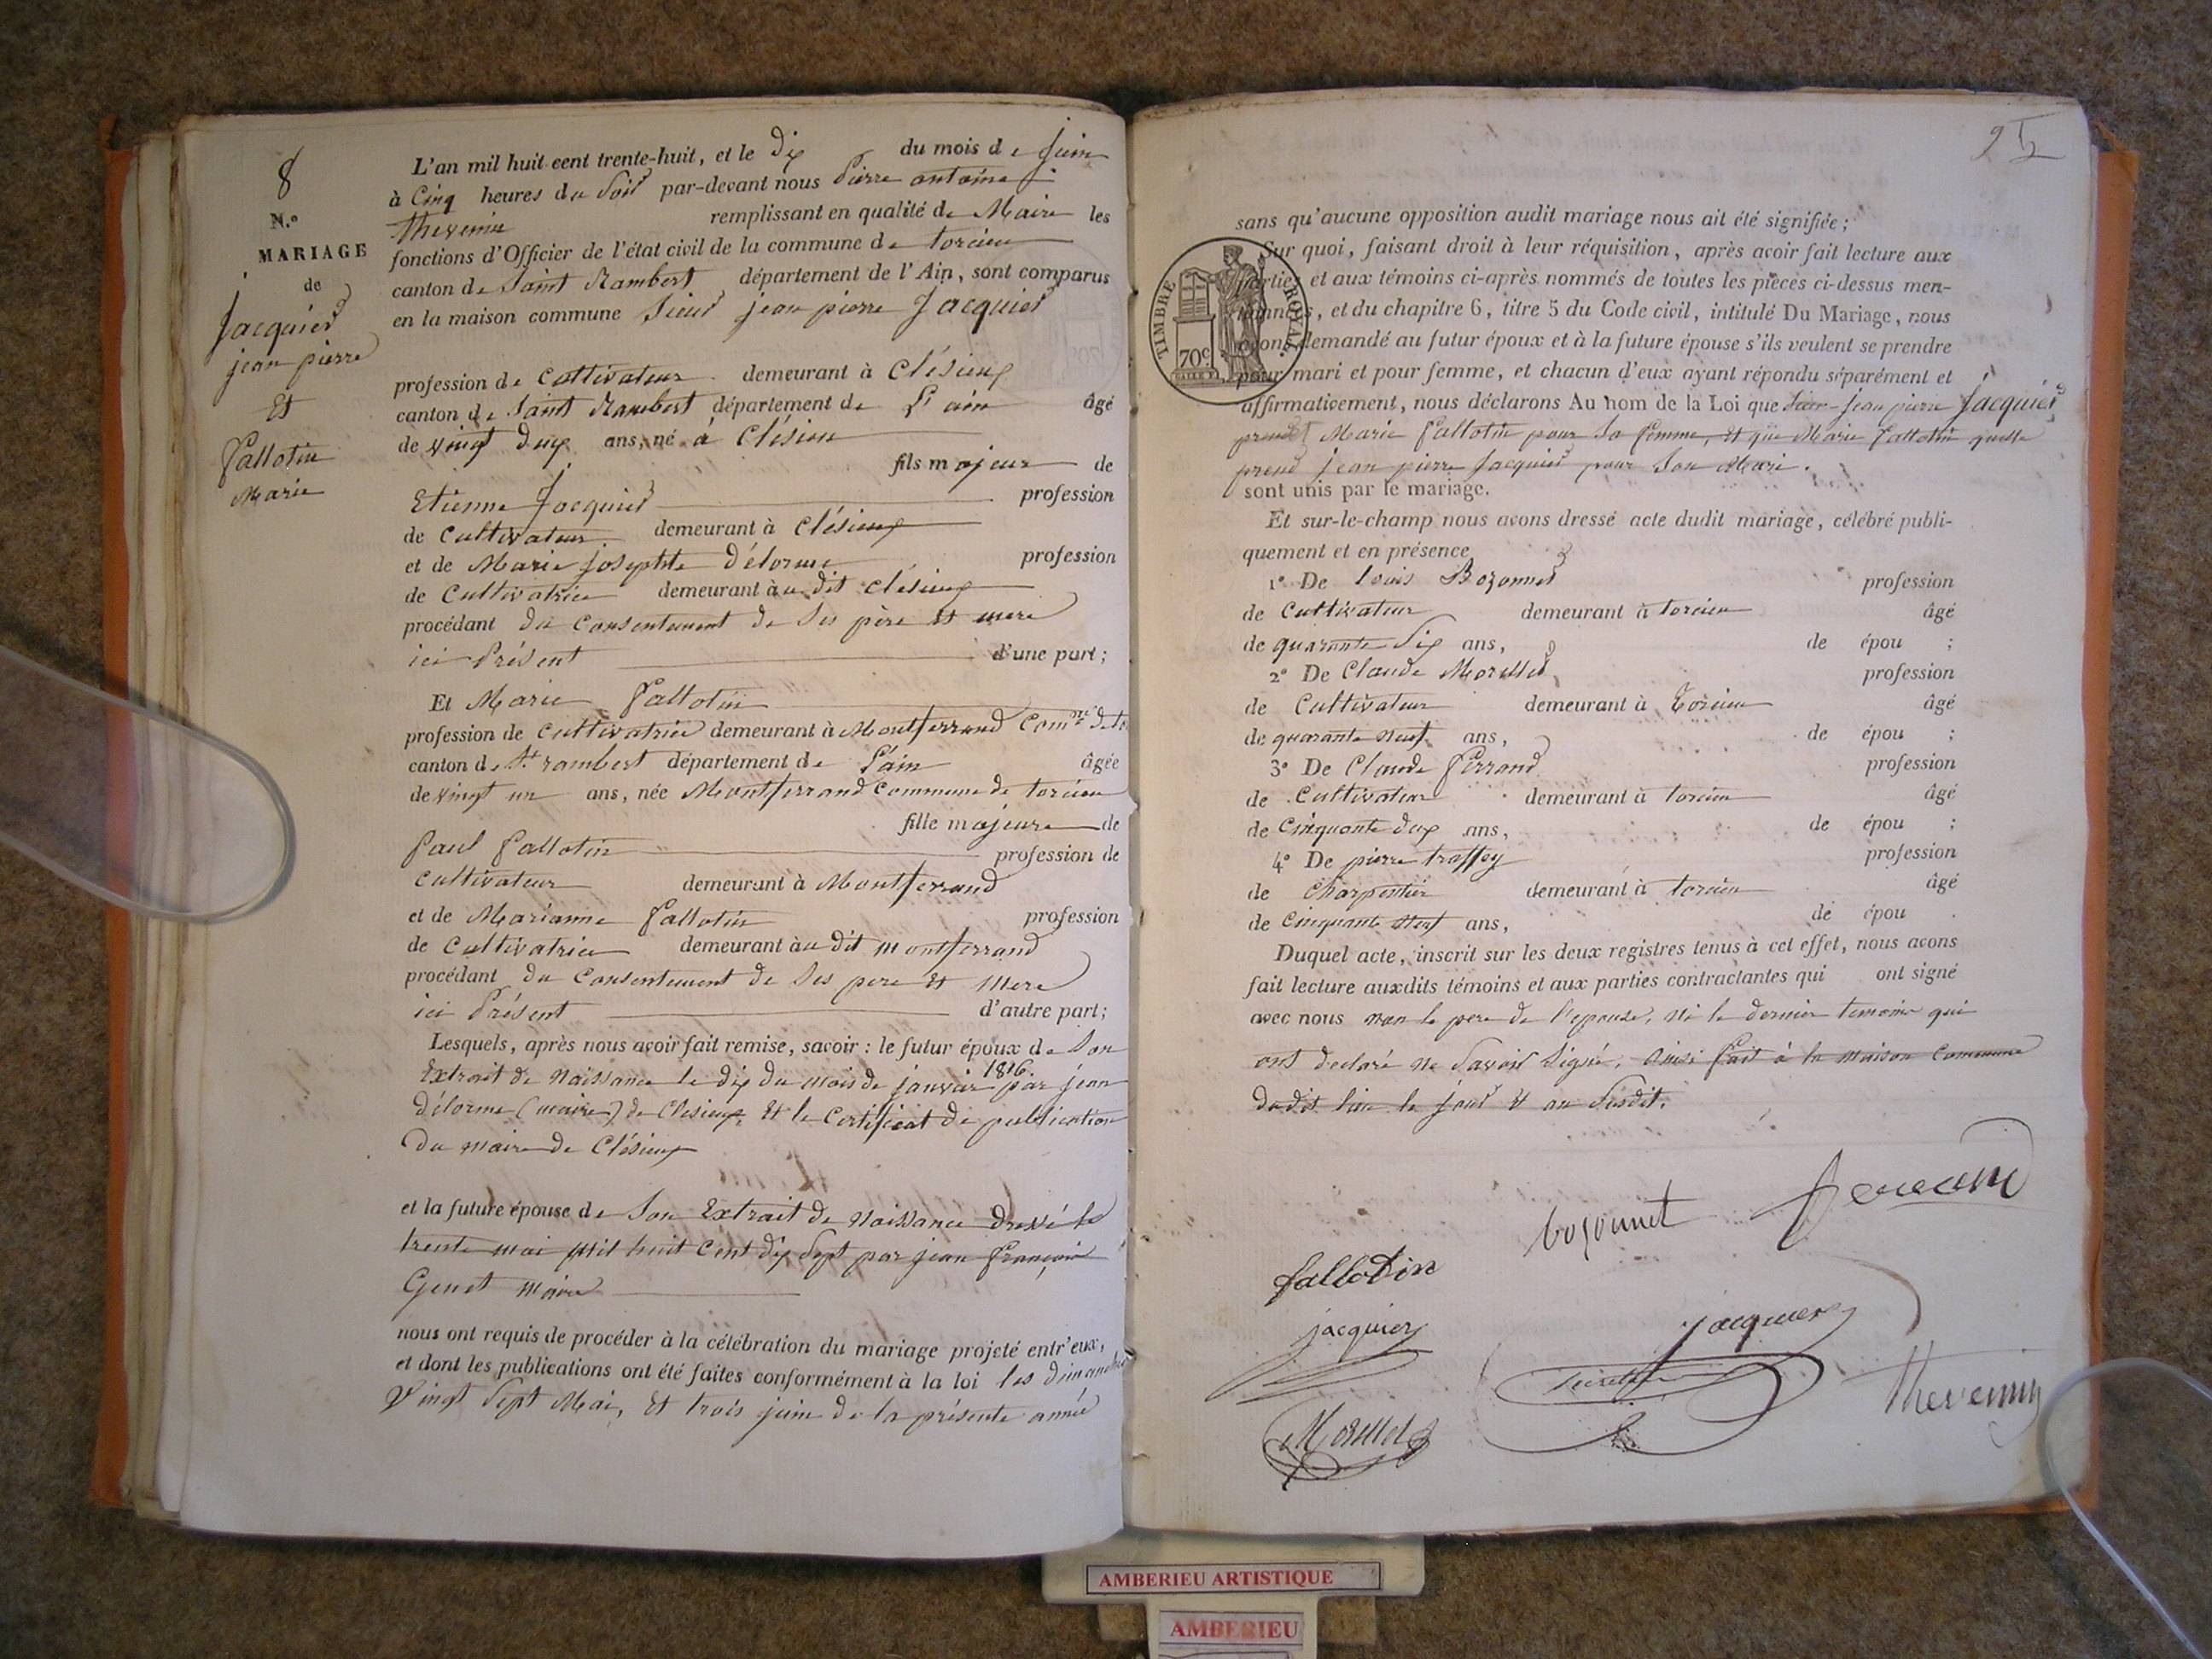 8
N.º
MARIAGE
de
Jacquier
jean pierre
Et
Fallotin
Marie
L'an mil huit cent trente-huit, et le Dix du mois de Juin
à Cinq heures du Soir par-devant nous Pierre antoine
Thevenin remplissant en qualité de Maire les
fonctions d'Officier de l'état civil de la commune de torcieu
canton de Saint Rambert département de l'Ain, sont comparus
en la maison commune Sieur jean pierre Jacquier
profession de Cultivateur demeurant à Clésieux
canton de Saint Rambert département de L'ain âgé
de vingt deux ans, né à Clésieu
fils majeur de
Etienne Jacquier profession
de Cultivateur demeurant à Clésieux
et de Marie Josephte Délorme profession
de Cultivatrice demeurant àu dit clésieux
procédant du Consentement de Ses père et mere
ici Présent d'une part;
Et Marie Fallotin
profession de Cultivatrice demeurant à Montferrand Comne de to
canton de St rambert département de L'ain âgée
de vingt un ans, née Montferrand Commune de torcieu
fille majeure de
Paul Fallotin profession de
Cultivateur demeurant à Montferrand
et de Marianne Fallotin profession
de Cultivatrice demeurant àu dit montferrand
procédant du Consentement de Ses pere et Mere
ici Présent d'autre part;
Lesquels, après nous avoir fait remise, savoir : le futur époux de Son
Extrait de Naissance le dix du mois de janvier 1816. par jean
Délorme (maire) de Clesieux, Et le Certificat de publication
Du maire de Clésieux
et la future épouse de Son Extrait de Naissance dressé le
trente mai mil huit Cent dix Sept par jean François
Genet maire
nous ont requis de procéder à la célébration du mariage projeté entr'eux,
et dont les publications ont été faites conformément à la loi les dimanches
Vingt Sept Mai, Et trois juin de la présente année
sans qu'aucune opposition audit mariage nous ait été signifiée;
Sur quoi, faisant droit à leur réquisition, après avoir fait lecture aux
parties et aux témoins ci-après nommés de toutes les pièces ci-dessus men-
tionnées, et du chapitre 6, titre 5 du Code civil, intitulé Du Mariage, nous
avons demandé au futur époux et à la future épouse s'ils veulent se prendre
pour mari et pour femme, et chacun d'eux ayant répondu séparément et
affirmativement, nous déclarons Au nom de la Loi que jean pierre Jacquier
prend Marie Fallotin pour Sa femme, Et que Marie Fallotin quelle
prend jean pierre Jacquier pour Son Mari.
sont unis par le mariage.
TIMBRE ROYAL
70c
Et sur-le-champ nous avons dressé acte dudit mariage, célébré publi-
quement et en présence
1º De Louis Bozonnet profession
de Cultivateur demeurant à torcieu âgé
de quarante Six ans, de épou ;
2º De Claude Morellet profession
de Cultivateur demeurant à Torcieu âgé
de quarante neuf ans, de épou ;
3º De Claude Ferrand profession
de Cultivateur demeurant à torcieu âgé
de Cinquante deux ans, de épou ;
4º De pierre traffey profession
de Charpentier demeurant à torcieu âgé
de Cinquante Neuf ans, de épou .
Duquel acte, inscrit sur les deux registres tenus à cet effet, nous avons
fait lecture auxdits témoins et aux parties contractantes qui ont signé
avec nous non le pere de l'epouse, ni le dernier temoin qui
ont declaré ne Savoir Signé. Ainsi fait à la maison Commune
dudit lieu le jour et an Susdit.
bozonnet
fallotin
jacquier
jacquier
Morellet
Thevenin
AMBERIEU ARTISTIQUE
AMBERIEU